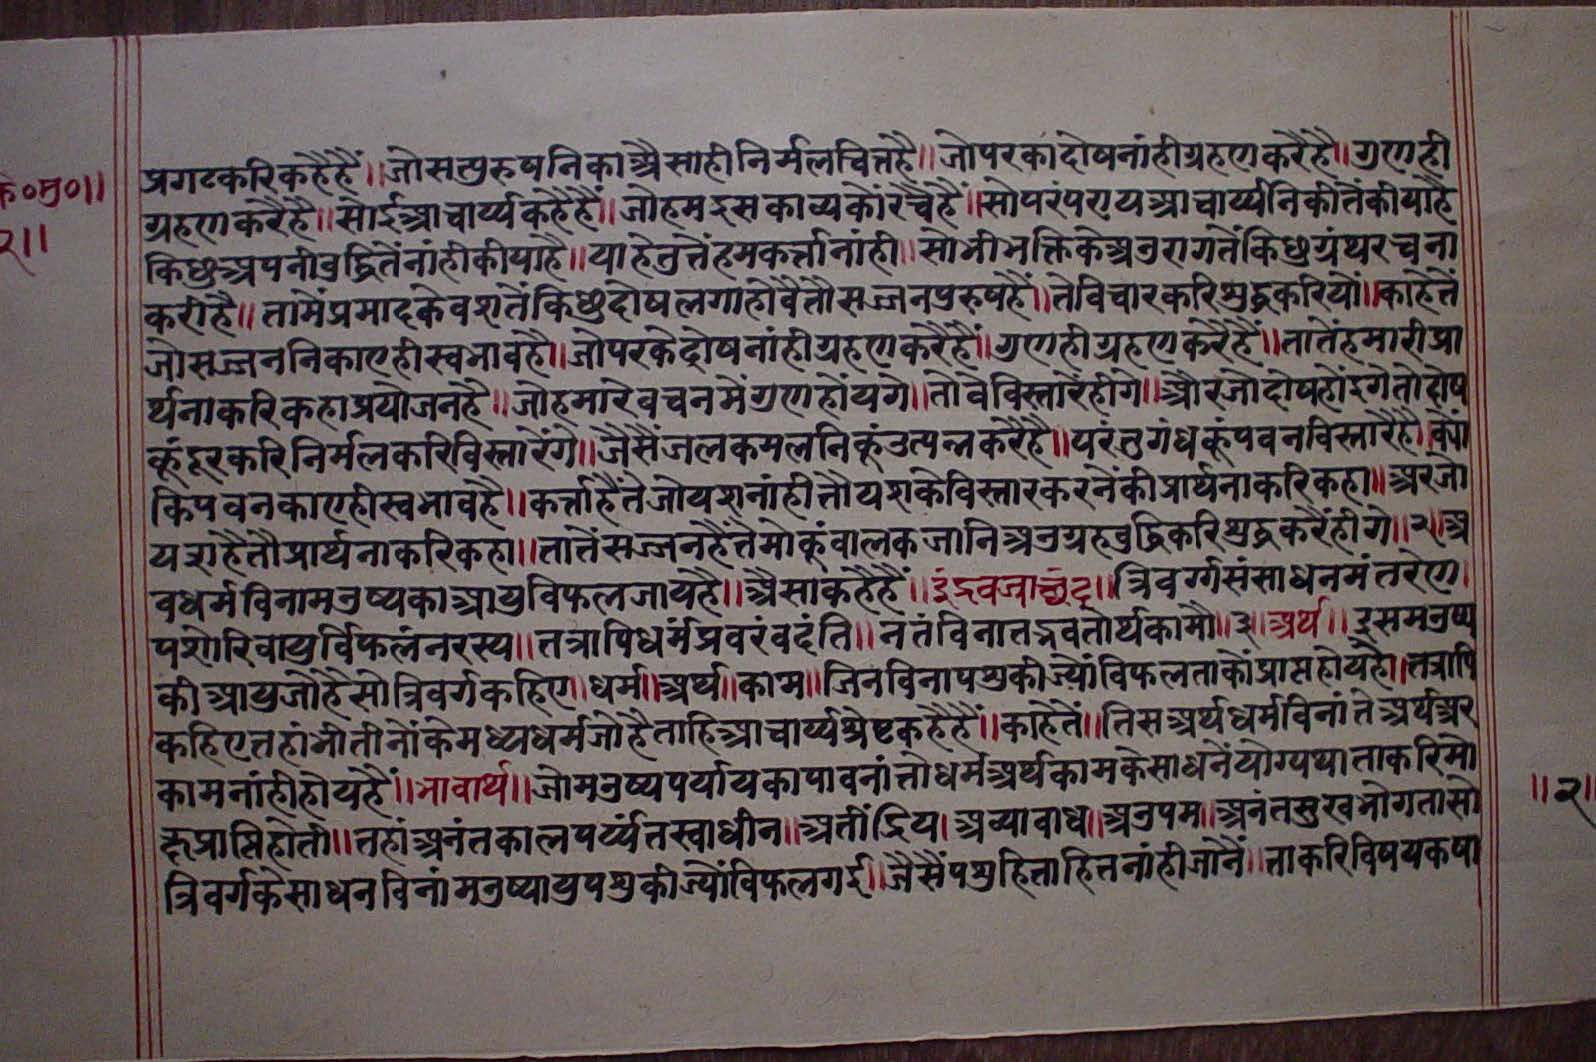 प्रगटकरिकहैहैं॥जोसत्पुरुषनिकाअैसाहीनिर्मलचित्तहै॥जोपरकादोषनांहीग्रहणकरैहै॥गुणही
ग्रहणकरैहै॥सोईआचार्य्यकहैहैं॥जोहमइसकाव्यकौंरचैंहैं॥सोपरंपरायआचार्य्यनिकीतैंकीयाहै
किछुअपनीबुद्धितैंनांहीकीयाहै॥याहेतुतैंहमकर्त्तानांही॥सोभीभक्तिकेअनुरागतैंकिछुग्रंथरचना
करीहै॥तामैंप्रमादकेवशतैंकिछुदोषलगाहोवैतौसज्जनपुरुषहैं॥तेविचारकरिशुद्धकरियों॥काहेतैं
जोसज्जननिकाएहीस्वभावहै॥जोपरकेदोषनांहीग्रहणकरैहैं॥गुणहीग्रहणकरैहैं॥तातैंहमारीप्रा
र्थनाकरिकहाप्रयोजनहै॥जोहमारेवचनमेंगुणहोंयगे॥तोवेविस्तारेंहींगे॥औरजोदोषहोंइगेतोदोष
कूंदूरकरिनिर्मलकरिविस्तारेंगे॥जैसैंजलकमलनिकूंउत्पन्नकरैहै॥परंतुगंधकूंपवनविस्तारैहै॥क्यों
किपवनकाएहीस्वभावहै॥कर्त्ताहैंतेजोयशनांहीतौयशकेविस्तारकरनैंकीप्रार्थनाकरिकहा॥अरजो
यशहैतौप्रार्थनाकरिकहा॥तातैंसज्जनहैंतैमोकूंबालकजानिअनुग्रहबुद्धिकरिशुद्धकरैंहींगे॥२॥अ
बधर्मविनामनुष्यकाआयुविफलजायहै॥अैसाकहैहैं॥इंद्रवज्राछंद॥त्रिवर्ग्गसंसाधनमंतरेण
पशोरिवायुर्विफलंनरस्य॥तत्रापिधर्मंप्रवरंवदंति॥नतंविनातद्भवतोर्थकामौ॥३॥अर्थ॥इसमनुष्य
कीआयुजोहैसोत्रिवर्गकहिए॥धर्म॥अर्थ॥काम॥जिनविनापशुकीज्योंविफलताकोंप्राप्तहोयहै॥तत्रापि
कहिएतहांभीतीनोंकेमध्यधर्मजोहैताहिआचार्य्यश्रेष्टकहैहैं॥काहेतें॥तिसअर्थधर्मविनांतेअर्थअर
कामनांहीहोयहैं॥भावार्थ॥जोमनुष्यपर्यायकापावनांतोधर्मअर्थकामकेसाधनेंयोग्यथाताकरिमो
क्षप्राप्तिहोती॥तहांअनंतकालपर्य्यंतस्वाधीन॥अतींद्रिय।अव्याबाध॥अनुपम॥अनंतसुखभोगतासो
त्रिवर्गकेसाधनविनांमनुष्यायुपशुकीज्योंविफलगई॥जैसैंपशुहिताहितनांहीजानें॥ताकरिविषयकषा
॥२॥